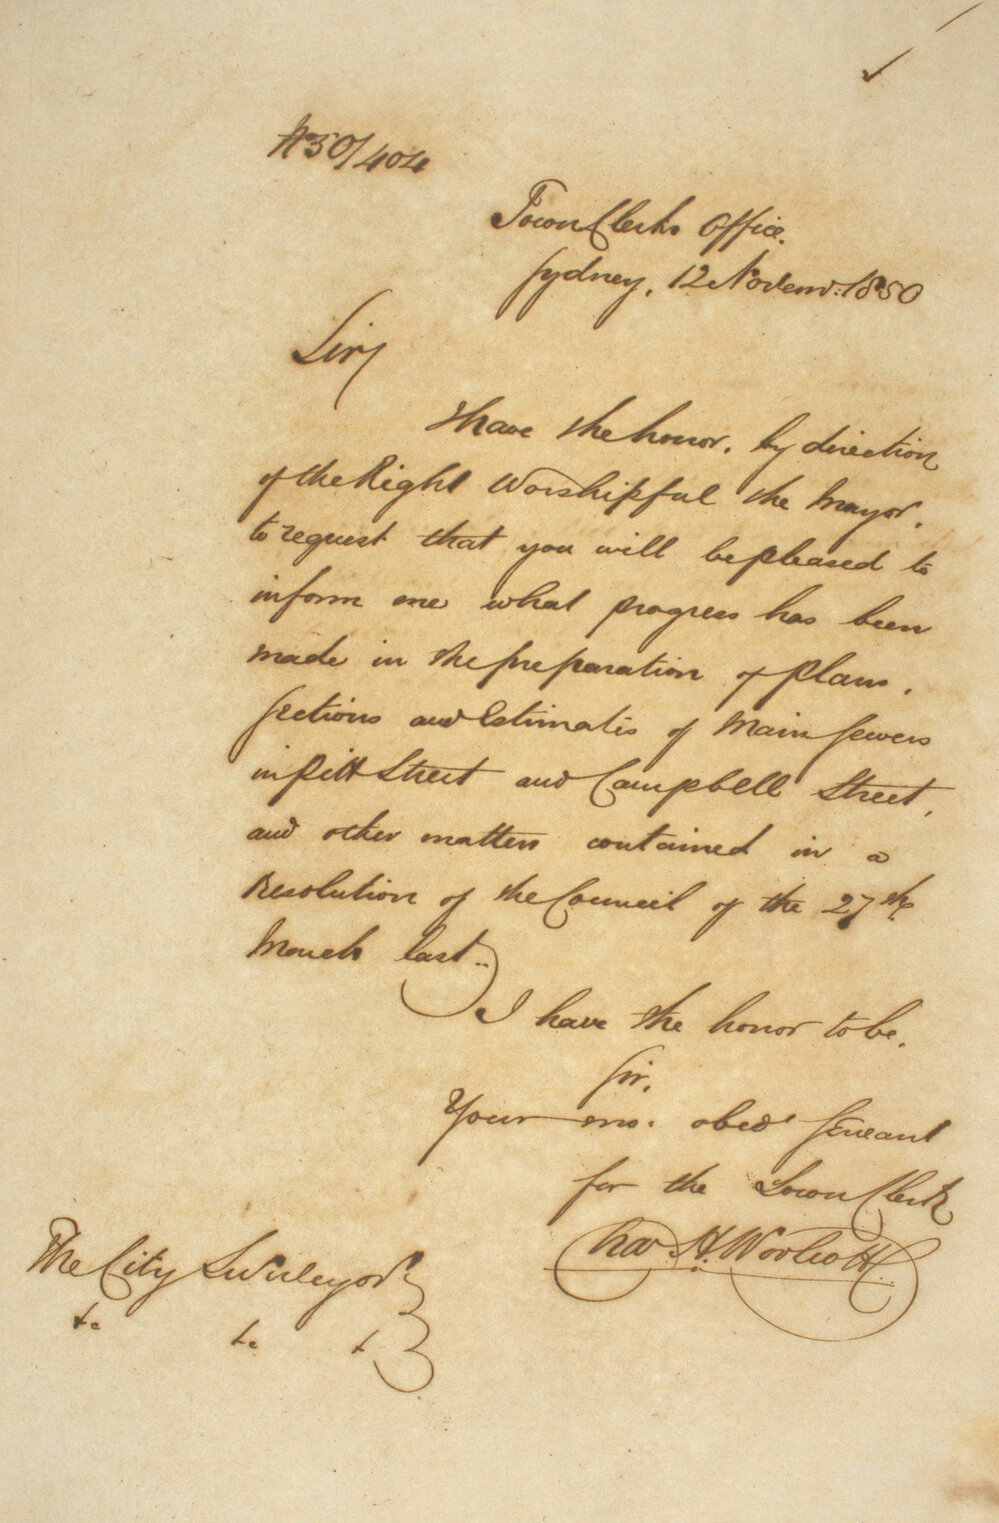 No 50/404
Town Clerks Office.
Sydney, 12 Novemr. 1850
Sir,
I have the honor, by direction
of the Right Worshipful the Mayor,
to request that you will be pleased to
inform me what progress has been
made in the preparation of plans,
Sections and Estimates of Main Sewers
in Pitt Street and Campbell Street,
and other matters contained in a
Resolution of the Council of the 27th
March last..
I have the honor to be,
Sir,
Your mo. obedt Servant
for the Town Clerk
Chas. H. Woolcott
The City Surveyor
&c &c &